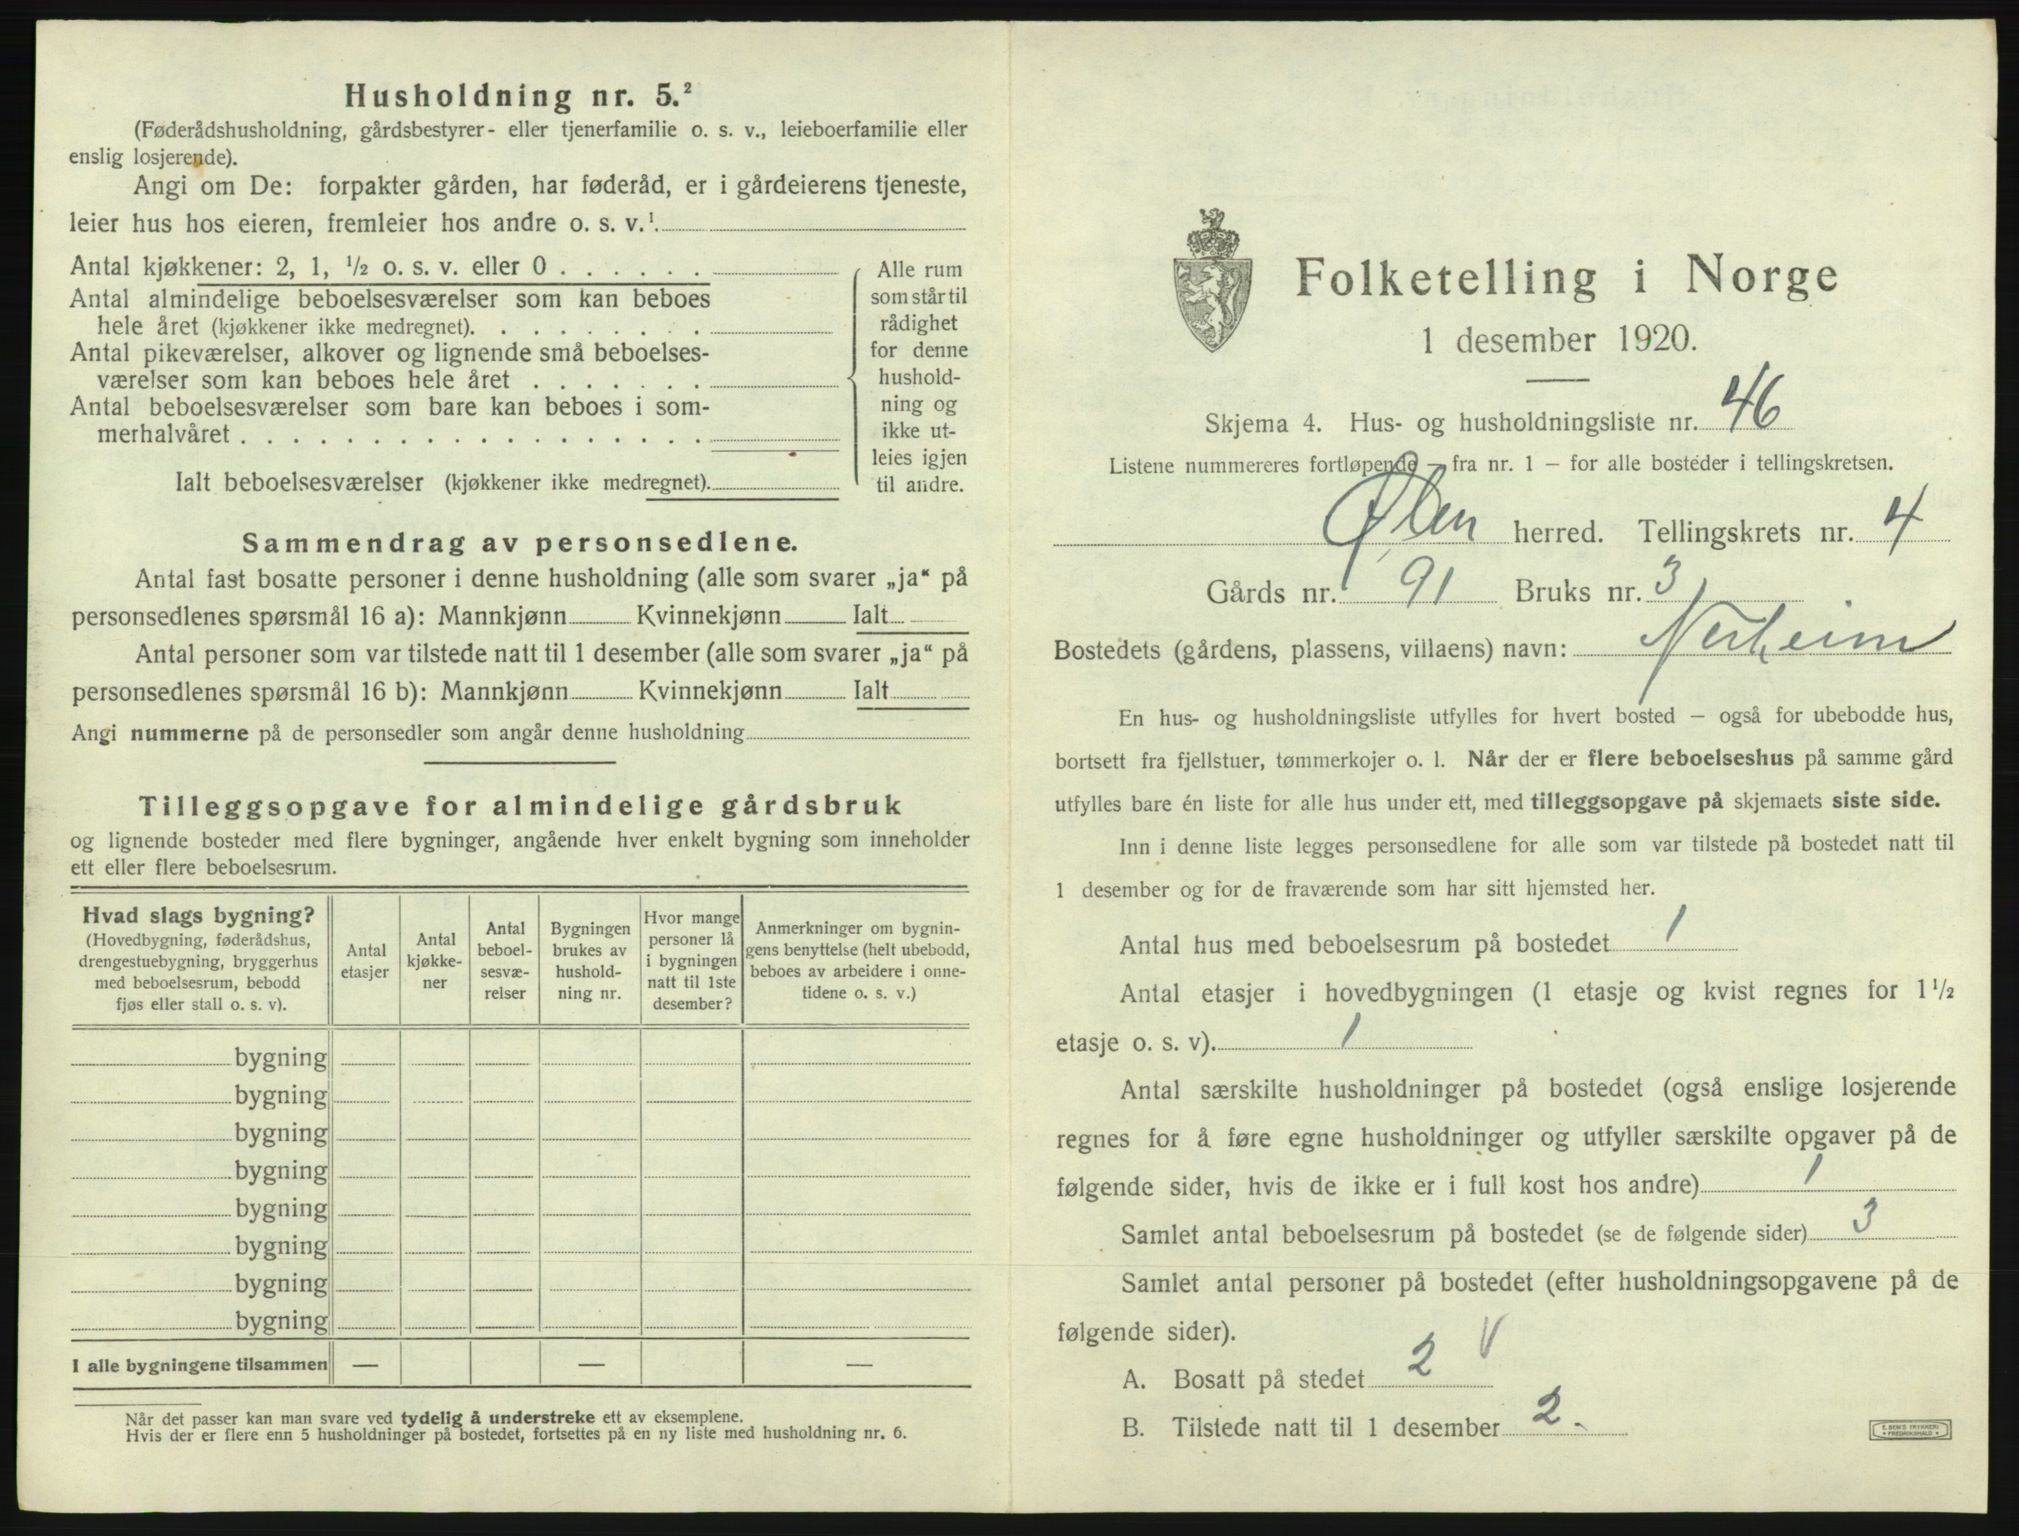 Husholdning nr. 5.²
(Føderådshusholdning, gårdsbestyrer- eller tjenerfamilie o. s. v., leieboerfamilie eller
enslig losjerende).
Angi om De: forpakter gården, har føderåd, er i gårdeierens tjeneste,
leier hus hos eieren, fremleier hos andre o. s. v.¹
Antal kjøkkener: 2, 1, ½ o. s. v. eller 0 . . . . . .
Antal almindelige beboelsesværelser som kan beboes
hele året (kjøkkener ikke medregnet). . . . . . . . .
Antal pikeværelser, alkover og lignende små beboelses-
værelser som kan beboes hele året . . . . . . .
Antal beboelsesværelser som bare kan beboes i som-
merhalvåret . . . . . . . . . . . . . . . . . .
Ialt beboelsesværelser (kjøkkener ikke medregnet).
Alle rum
som står til
rådighet
for denne
hushold-
ning og
ikke ut-
leies igjen
til andre.
Sammendrag av personsedlene.
Antal fast bosatte personer i denne husholdning (alle som svarer „ja“ på
personsedlenes spørsmål 16 a): Mannkjønn Kvinnekjønn Ialt
Antal personer som var tilstede natt til 1 desember (alle som svarer „ja“ på
personsedlenes spørsmål 16 b): Mannkjønn Kvinnekjønn Ialt
Angi nummerne på de personsedler som angår denne husholdning
Tilleggsopgave for almindelige gårdsbruk
og lignende bosteder med flere bygninger, angående hver enkelt bygning som inneholder
ett eller flere beboelsesrum.
Hvad slags bygning?
(Hovedbygning, føderådshus,
drengestuebygning, bryggerhus
med beboelsesrum, bebodd
fjøs eller stall o. s. v).
Antal
etasjer
Antal
kjøkke-
ner
Antal
beboel-
sesvæ-
relser
Bygningen
brukes av
hushold-
ning nr.
Hvor mange
personer lå
i bygningen
natt til 1ste
desember?
Anmerkninger om bygnin-
gens benyttelse (helt ubebodd,
beboes av arbeidere i onne-
tidene o. s. v.)
bygning
bygning
bygning
bygning
bygning
bygning
bygning
bygning
I alle bygningene tilsammen — — —
Når det passer kan man svare ved tydelig å understreke ett av eksemplene.
Hvis der er flere enn 5 husholdninger på bostedet, fortsettes på en ny liste med husholdning nr. 6.
Folketelling i Norge
1 desember 1920.
Skjema 4. Hus- og husholdningsliste nr. 46
Listene nummereres fortløpende – fra nr. 1 – for alle bosteder i tellingskretsen.
Ølen herred. Tellingskrets nr. 4
Gårds nr. 91 Bruks nr. 3
Bostedets (gårdens, plassens, villaens) navn: Nerheim
En hus- og husholdningsliste utfylles for hvert bosted – også for ubebodde hus,
bortsett fra fjellstuer, tømmerkojer o. l. Når der er flere beboelseshus på samme gård
utfylles bare én liste for alle hus under ett, med tilleggsopgave på skjemaets siste side.
Inn i denne liste legges personsedlene for alle som var tilstede på bostedet natt til
1 desember og for de fraværende som har sitt hjemsted her.
Antal hus med beboelsesrum på bostedet 1
Antal etasjer i hovedbygningen (1 etasje og kvist regnes for 1½
etasje o. s. v). 1
Antal særskilte husholdninger på bostedet (også enslige losjerende
regnes for å føre egne husholdninger og utfyller særskilte opgaver på de
følgende sider, hvis de ikke er i full kost hos andre) 1
Samlet antal beboelsesrum på bostedet (se de følgende sider) 3
Samlet antal personer på bostedet (efter husholdningsopgavene på de
følgende sider).
A. Bosatt på stedet 2 V
B. Tilstede natt til 1 desember 2.